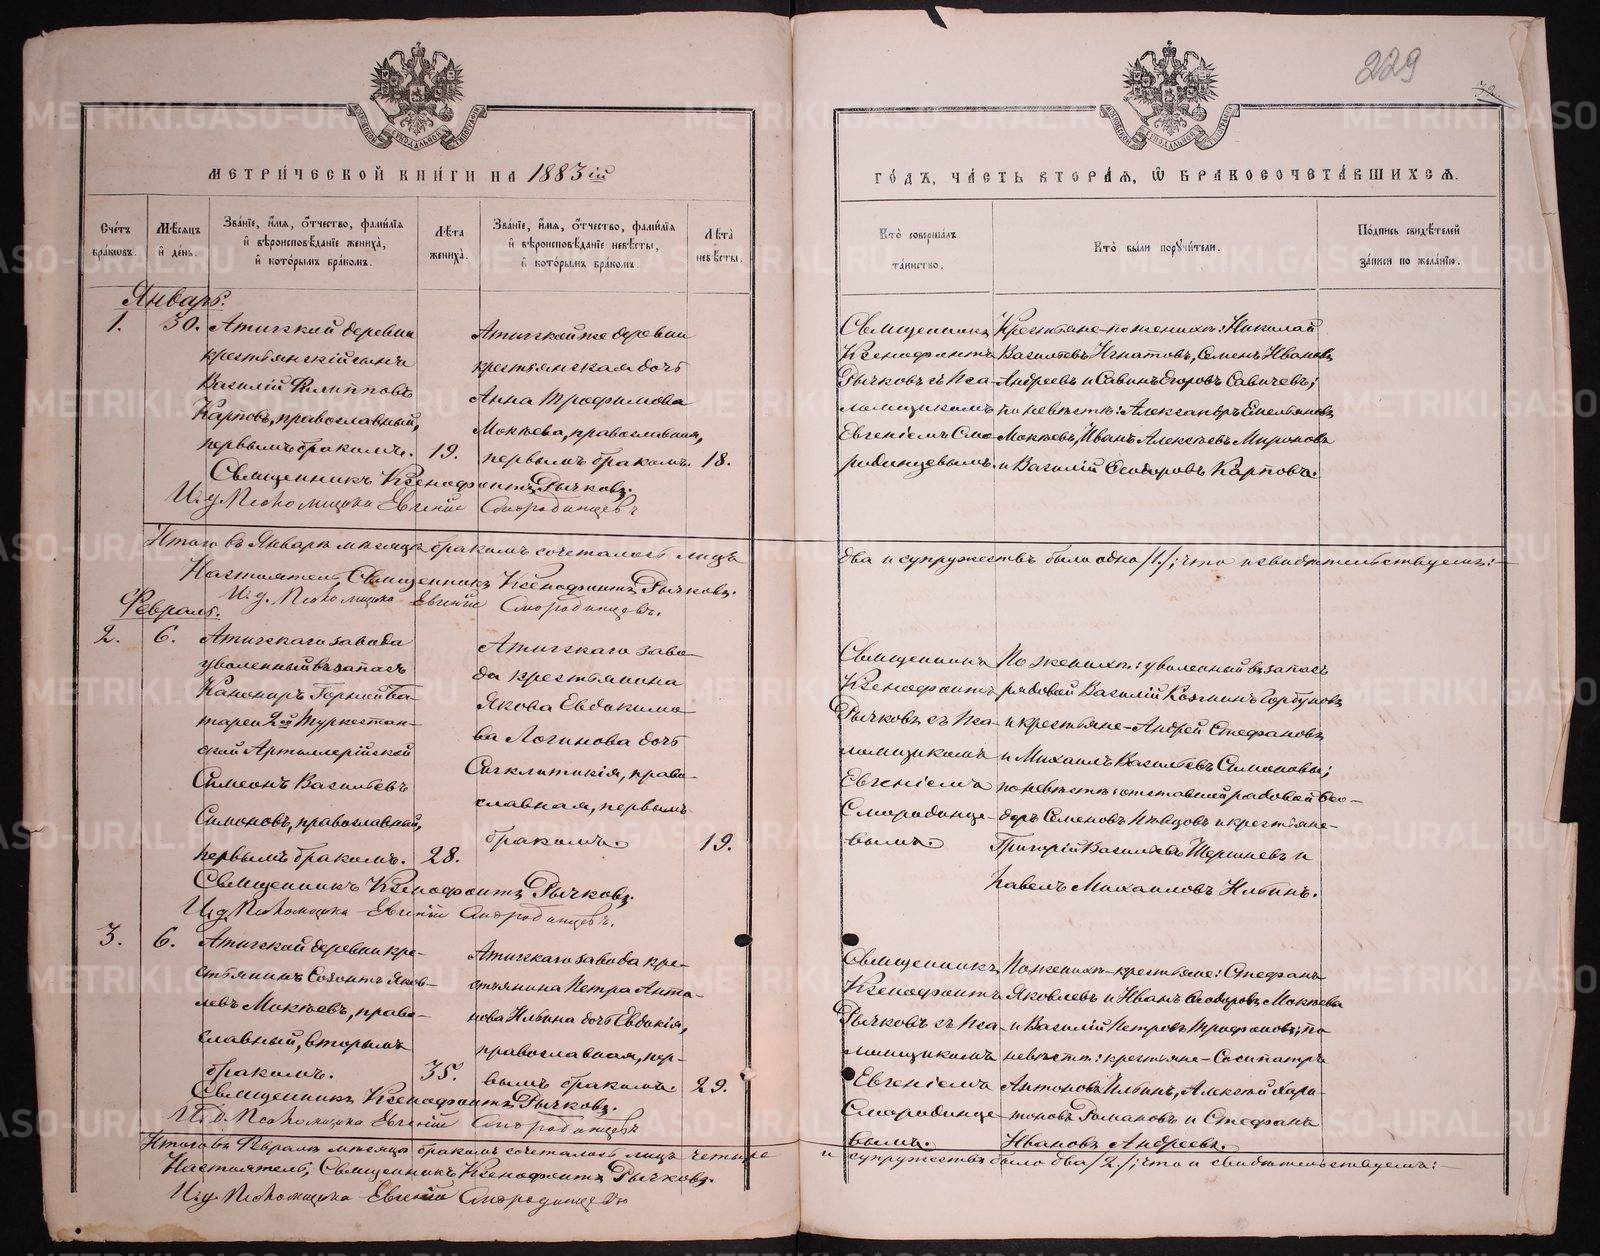 229
МЕТРИ́ЧЕСКОЙ КНИ́ГИ НА 1883 ій
ГО́ДЪ, ЧА́СТЬ ВТОРА́Я, Ѽ БРАКОСОЧЕТА́ВШИХСЯ.
Сче́тъ бра́ковъ.
Мѣ́сяцъ и҆ де́нь.
Зва́нїе, и҆́мѧ, ѻ҆́тчество, фами́лїѧ и҆ вѣроисповѣ́данїе жениха̀, и҆ кото́рымъ бра́комъ.
Лѣ́та жениха̀.
Зва́нїе, и҆́мѧ, ѻ҆́тчество, фами́лїѧ и҆ вѣроисповѣ́данїе невѣ́сты, и҆ кото́рымъ бра́комъ.
Лѣ́та невѣ́сты.
Кто̀ соверша́лъ та́инство.
Кто̀ бы́ли поручи́тели.
По́дпись свидѣ́телей за́писи по жела́нїю.
Январь.
1.
30.
Атигской деревни
крестьянскій сынъ
Василій Филипповъ
Карповъ, православный,
первымъ бракомъ.
19.
Атигской же деревни
крестьянская дочь
Анна Трофимова
Мокѣева, православная,
первымъ бракомъ.
18.
Священникъ
Ксенофонтъ
Рычковъ съ Пса
ломщикомъ
Евгеніемъ Смо
родинцевымъ.
Крестьяне-по женихѣ: Николай
Васильевъ Игнатовъ, Семенъ Ивановъ
Андреевъ и Савинъ Егоровъ Савичевъ;
по невѣстѣ: Александръ Емельяновъ
Мокѣевъ, Иванъ Алексѣевъ Мироновъ
и Василій Ѳеодоровъ Карповъ.
Священникъ Ксенофонтъ Рычковъ.
И. д. Псаломщика Евгеній Смородинцевъ
Итого въ Январѣ мѣсяцѣ бракомъ сочеталось лицъ
два и супружествъ было одно /1/; что и свидѣтельствуемъ:
Настоятель, Священникъ Ксенофонтъ Рычковъ.
И. д. Псаломщика Евгеній Смородинцевъ.
Февраль.
2.
6.
Атигскаго завода
уволенный въ запасъ
Канониръ Горной Ба
тареи 2ой Туркестан-
ской Артиллерійской
Симеонъ Васильевъ
Симоновъ, православный,
первымъ бракомъ.
28.
Атигскаго заво-
да крестьянина
Якова Евдокимо
ва Логинова дочь
Синклитикія, право-
славная, первымъ
бракомъ.
19.
Священникъ
Ксенофонтъ
Рычковъ съ Пса-
ломщикомъ
Евгеніемъ
Смородинце-
вымъ.
По женихѣ: уволенный въ запасъ
рядовой Василій Козминъ Горбуновъ
и крестьяне-Андрей Стефановъ
и Михаилъ Васильевъ Симоновы;
по невѣстѣ: отставной рядовой Ѳео-
доръ Семеновъ Пѣвцовъ и крестьяне-
Григорій Васильевъ Шершневъ и
Павелъ Михаиловъ Ильинъ.
Священникъ Ксенофонтъ Рычковъ.
И. д. Псаломщика Евгеній Смородинцевъ.
3.
6.
Атигской деревни кре-
стьянинъ Созонтъ Яков-
левъ Мокѣевъ, право-
славный, вторымъ
бракомъ.
35.
Атигскаго завода кре-
стьянина Петра Анто-
нова Ильина дочь Евдокія,
православная, пер-
вымъ бракомъ.
29.
Священникъ
Ксенофонтъ
Рычковъ съ Пса
ломщикомъ
Евгеніемъ
Смородинце-
вымъ.
По женихѣ-крестьяне: Стефанъ
Яковлевъ и Иванъ Ѳеодоровъ Мокѣевы
и Василій Петровъ Трифоновъ; по
невѣстѣ: крестьяне-Сосипатръ
Антоновъ Ильинъ, Алексѣй Хари-
тоновъ Романовъ и Стефанъ
Ивановъ Андреевъ.
Священникъ Ксенофонтъ Рычковъ.
И. д. Псаломщика Евгеній Смородинцевъ
Итого въ Февралѣ мѣсяцѣ бракомъ сочеталось лицъ четыре
и супружествъ было два /2/; что и свидѣтельствуемъ:-
Настоятель, Священникъ Ксенофонтъ Рычковъ.
И. д. Псаломщика Евгеній Смородинцевъ
METRIKI.GASO-URAL.RU